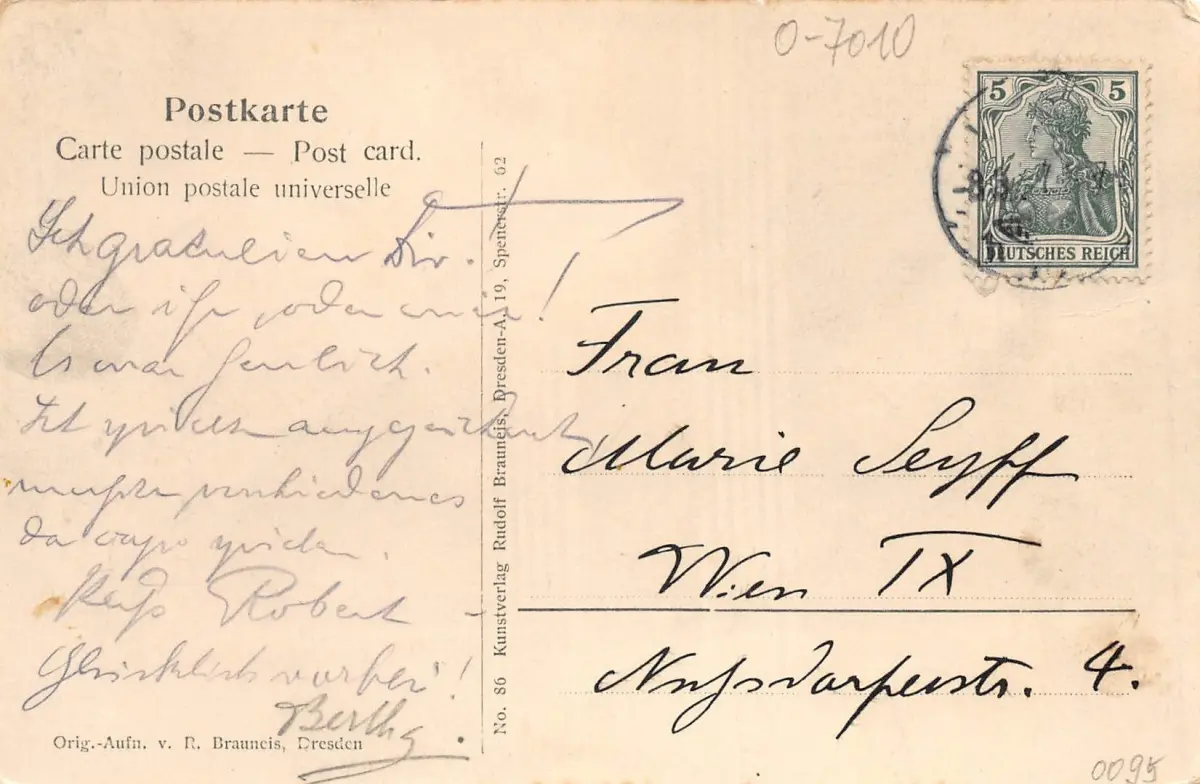 O-7010
Postkarte
Carte postale — Post card.
Union postale universelle
5 5
DEUTSCHES REICH
Ich gratuliere Dir.
oder ihr, oder mir!
Es war herrlich.
spielte ausgezeichnet
mußte verschiedenes
da capo spielen.
Robert -
Glücklich vorbei!
Bertha
Orig.-Aufn. v. R. Brauneis, Dresden
No. 86 Kunstverlag Rudolf Brauneis, Dresden-A. 19, Spenerstr. 62
Frau
Marie Seyff
Wien IX
Nußdorferstr. 4.
0095